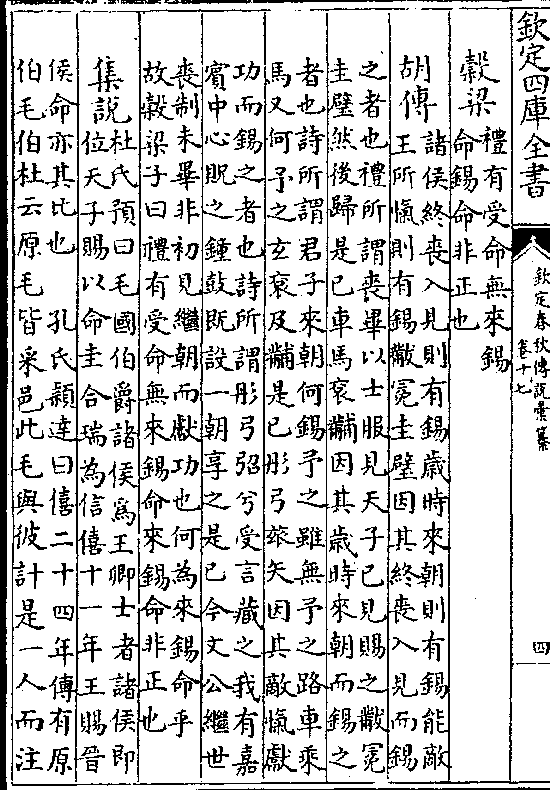 欽定四庫全書
欽定春秋傳說彙纂
卷十七
四
穀梁
禮有受命無來錫
命錫命非正也
胡傳
諸侯終喪入見則有錫歲時來朝則有錫能敵
王所愾則有錫黻冕圭璧因其終喪入見而錫
之者也禮所謂喪畢以士服見天子已見賜之黻冕
圭璧然後歸是已車馬袞黼因其歲時來朝而錫之
者也詩所謂君子來朝何錫予之雖無予之路車乘
馬又何予之玄袞及黼是已彤弓玈矢因其敵愾獻
功而錫之者也詩所謂彤弓弨兮受言藏之我有嘉
賓中心貺之鍾鼓既設一朝享之是已今文公繼世
喪制未畢非初見繼朝而獻功也何為來錫命乎
故穀梁子曰禮有受命無來錫命來錫命非正也
集說
杜氏預曰毛國伯爵諸侯為王卿士者諸侯即
位天子賜以命圭合瑞為信僖十一年王賜晉
侯命亦其比也　孔氏穎達曰僖二十四年傳有原
伯毛伯杜云原毛皆采邑此毛與彼計是一人而注